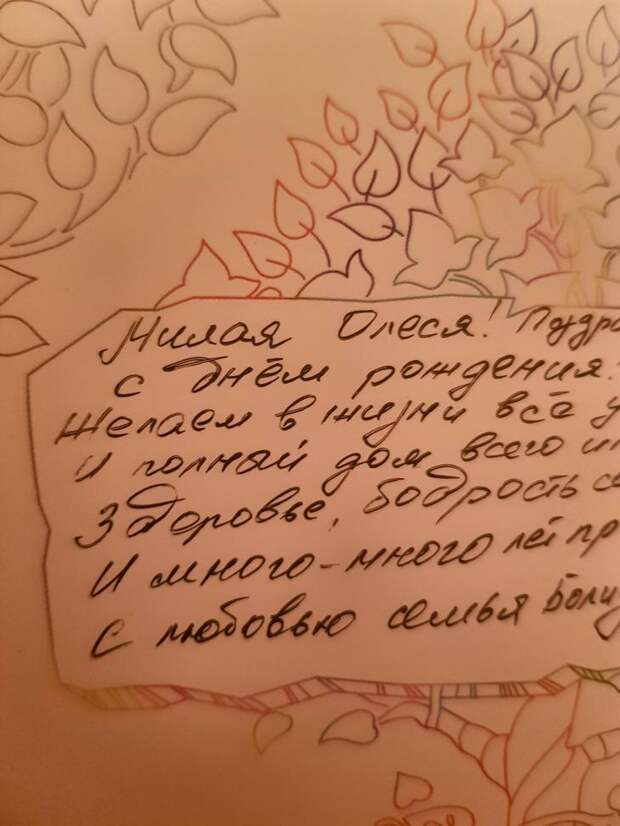 Милая Олеся! Пидро
с днём рождения.
Желаем в жизни всё у
И полный дом всего и
Здоровье, бодрость се
И много-много лет пр
С любовью семья Боли